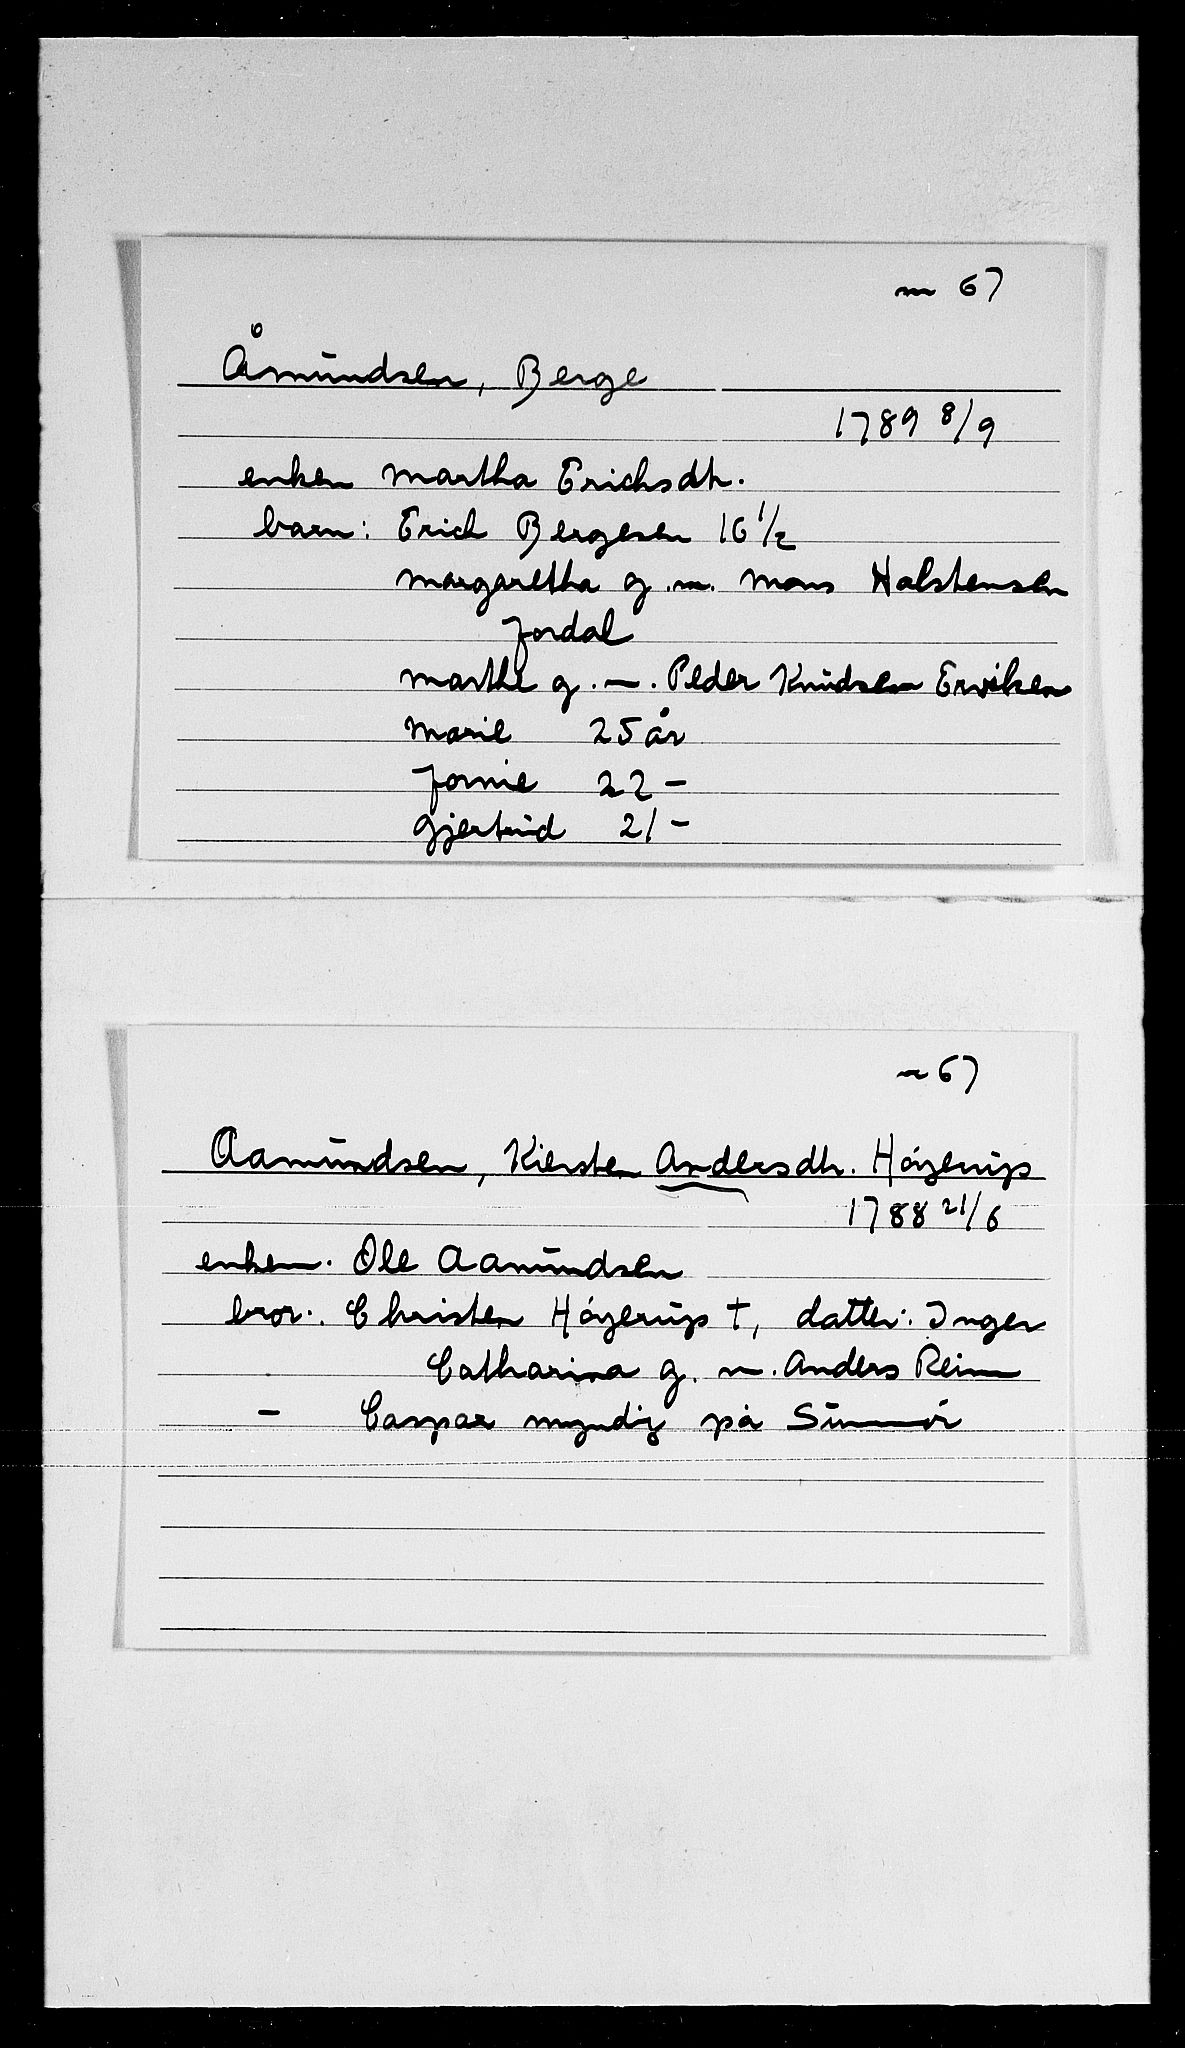 m 67
Åmundsen, Berge
1789 8/9
enken Martha Erichsdtr.
barn: Erich Bergesen 16 1/2
Margaretha g. m. Mons Halstensen
Jordal
Marthe g. m. Peder Knudsen Erviken
Marie 25 år
22 -
Gjertrud 21 -
m 67
Aamundsen, Kiersten Andersdtr. Höyerup
1788 21/6
enkem. Ole Aamundsen
bror: Christen Höyerup †, datter: Inger
Catharina g. m. Anders Reim
- Caspar myndig på Sünmör